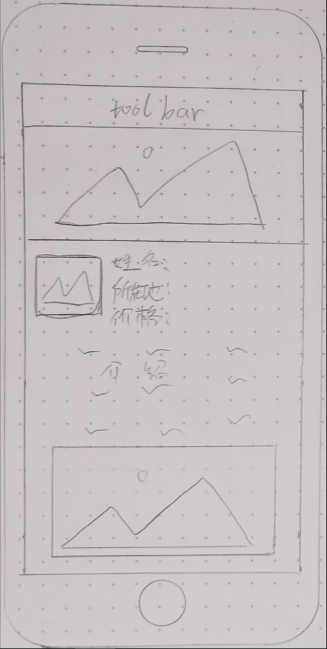 tool bar
姓名:
所在地:
价格:
介绍